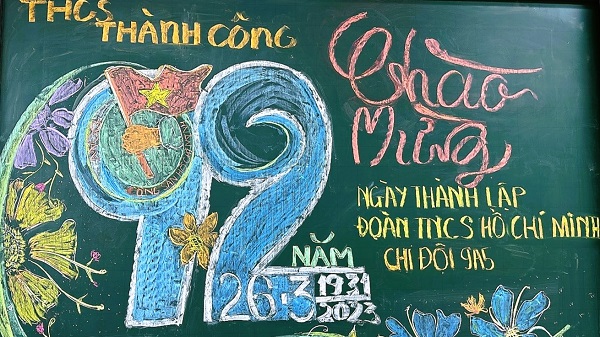 THCS
THÀNH CÔNG
Chào
Mừng
92
NGÀY THÀNH LẬP
ĐOÀN TNCS HỒ CHÍ MINH
CHI ĐỘI 9A5
NĂM
26-3
1931
2023